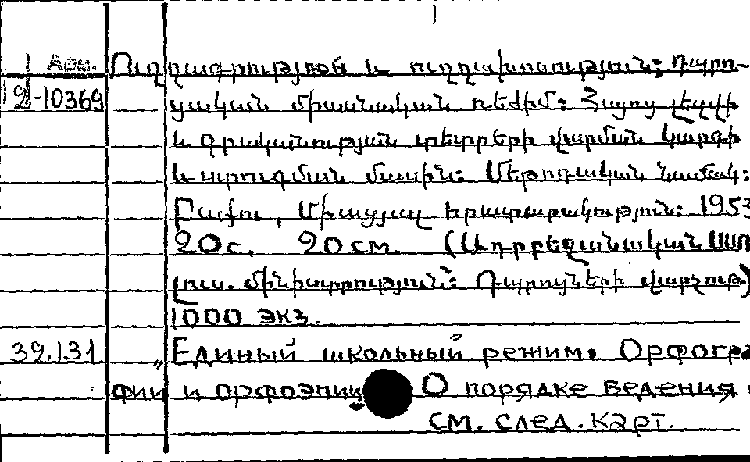 Арм. Ուղղագրության և ուղղախոսության: Դպրո-
2-10369 ցական միասնական ռեժիմ: Հայոց լեզվի
և գրականության տետրերի վարման կարգի
և ստուգման մասին: Մեթոդական նամակ:
Բաքու, Միացյալ հրատարակություն: 1953
20с. 20см. (Ադրբեջանական ՍՍՌ
լուս. մինիստրություն: Դպրոցների վարչութ)
1000 экз.
39.131 Единый школьный режим. Орфогра
фии и орфоэпии О порядке ведения
см. след. карт.